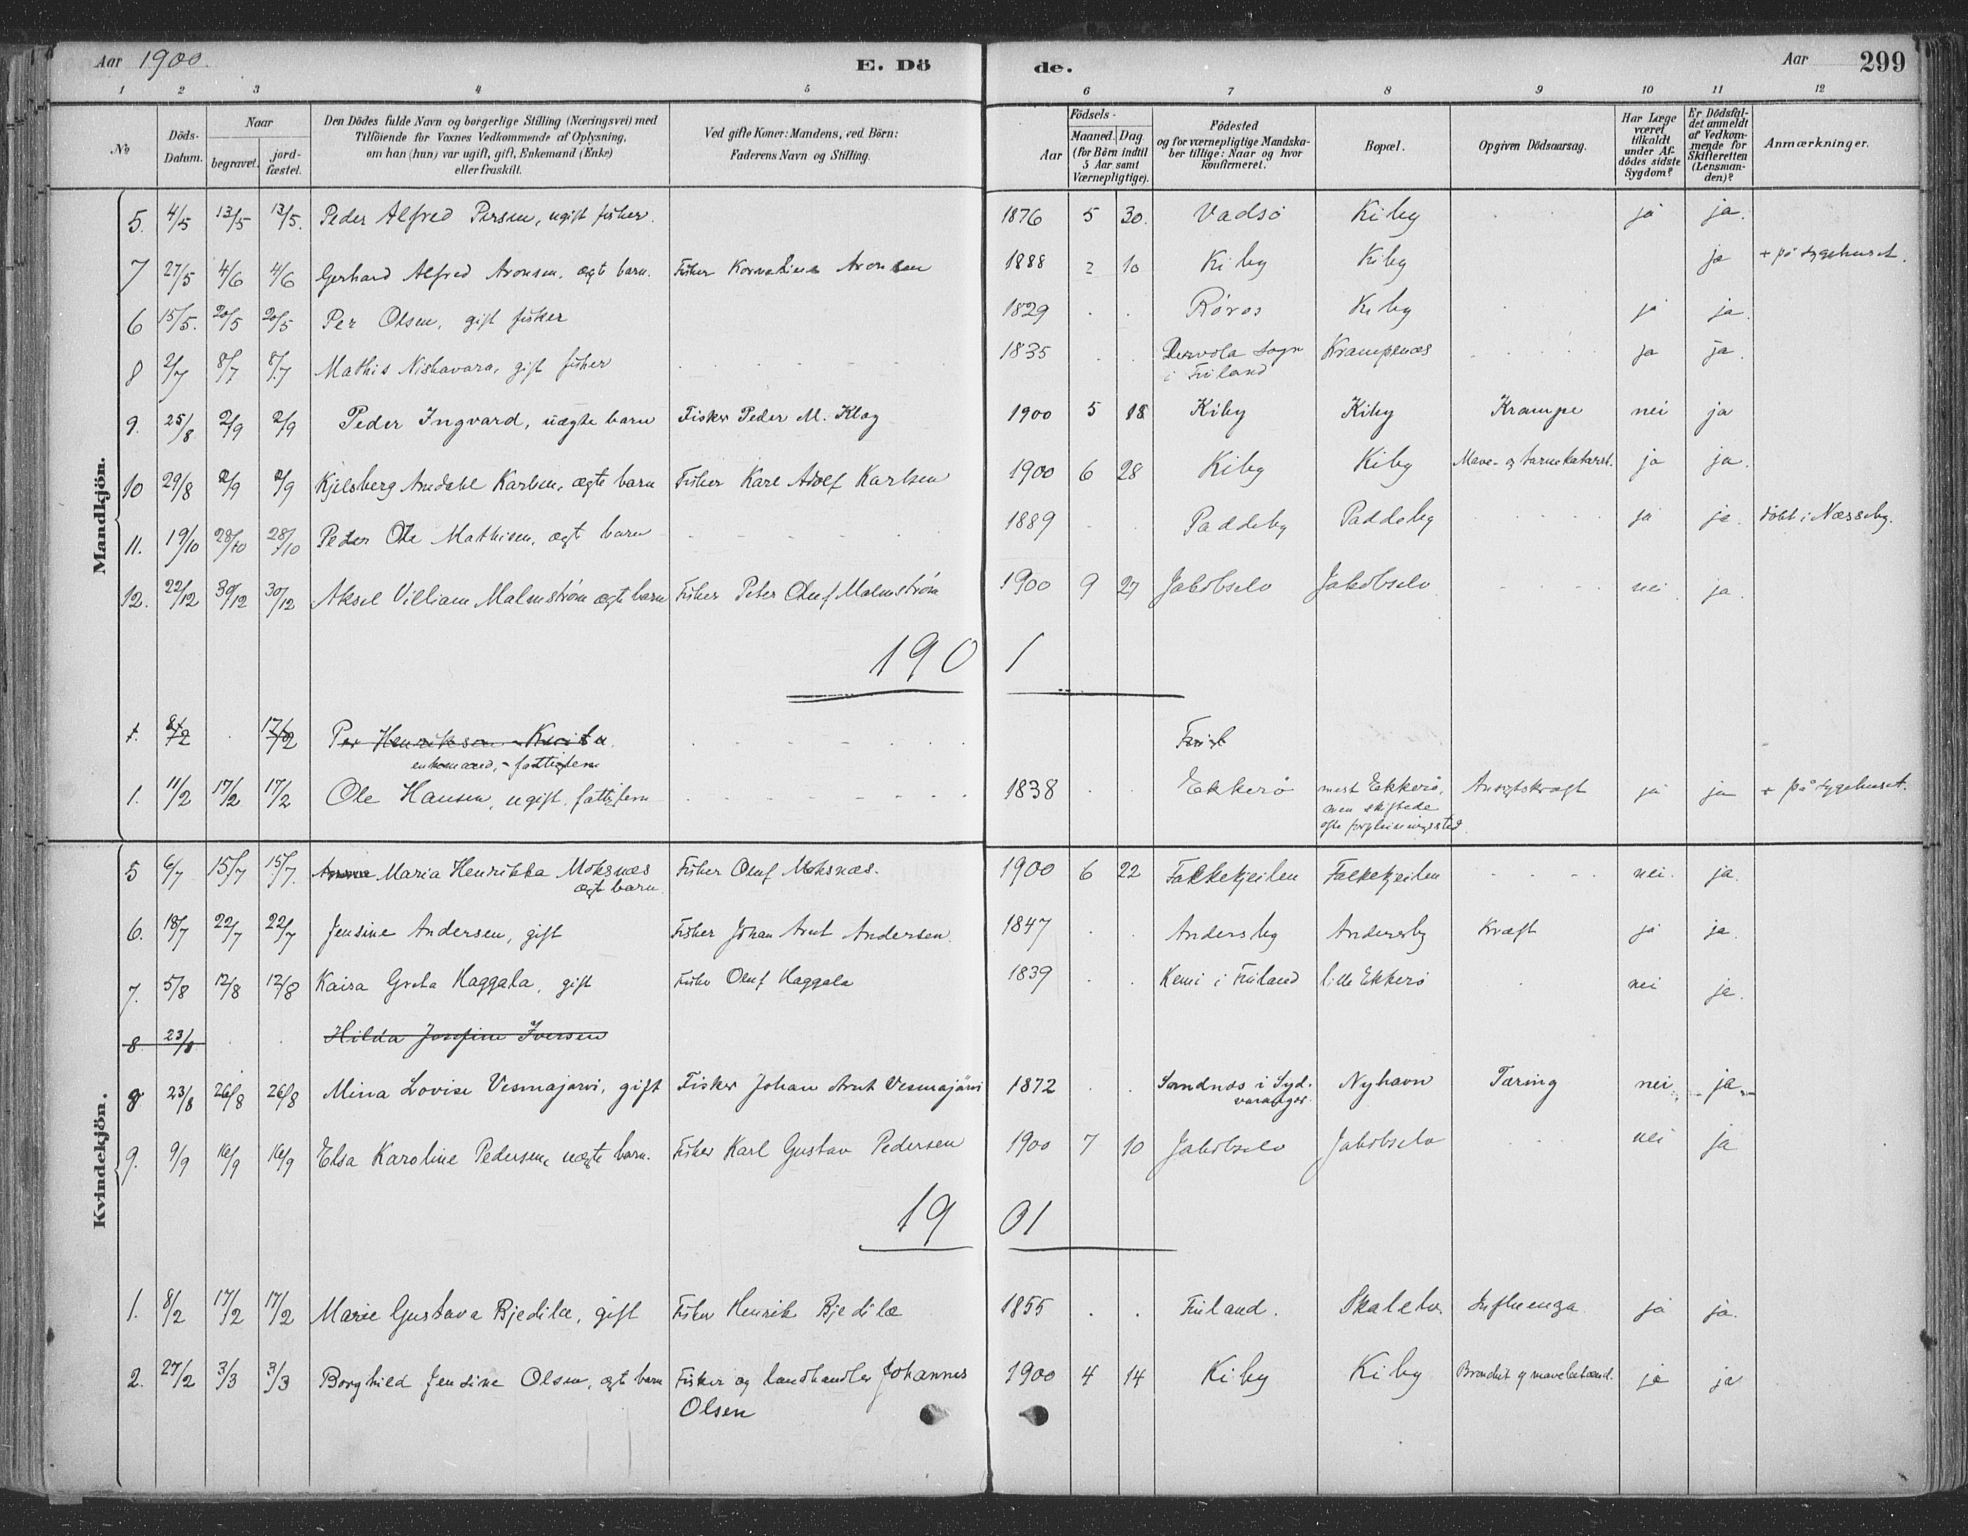 Aar 1900. E. Dö de. Aar 299
1 2 3 4 5 6 7 8 9 10 11 12
No
Döds-Datum.
Naar
begravet.
jord-fæstet.
Den Dödes fulde Navn og borgerlige Stilling (Næringsvei) med
Tilföiende for Voxnes Vedkommende af Oplysning,
om han (hun) var ugift, gift, Enkemand (Enke)
eller fraskilt.
Ved gifte Koner: Mandens, ved Börn:
Faderens Navn og Stilling.
Födsels-
Aar
Maaned. Dag
(for Börn indtil
5 Aar samt
Værnepligtige).
Födested
og for værnepligtige Mandska-
ber tillige: Naar og hvor
konfirmeret.
Bopæl.
Opgiven Dödsaarsag.
Har Læge
været
tilkaldt
under Af-
dödes sidste
Sygdom?
Er Dödsfal-
det anmeldt
af Vedkom-
mende for
Skifteretten
(Lensman-
den)?
Anmærkninger.
Mandkjön.
5. 4/5 13/5 13/5. Peder Alfred Persen, ugift fisker. 1876 5 30. Vadsö Kiby ja ja.
7 27/5 4/6 4/6 Gerhard Alfred Aronsen, ægt barn. Fisker Kornelius Aronsen 1888 2 10 Kiby Kiby ja + på sygehuset.
6 15/5. 20/5 20/5 Per Olsen, gift fisker 1829 . . Røros Kiby ja ja.
8 2/7 8/7 8/7 Mathis Niskavara, gift fisher 1835 . . Tervola sogn Krampenæs ja ja.
i Finland
9. 25/8 2/9 2/9 Peder Ingvard, uægte barn Fisker Peder M. Klog 1900 5 18 Kiby Kiby Krampe nei ja
10 29/8 2/9 2/9 Kjelsberg Amdahl Karlsen, ægte barn Fisker Karl Adolf Karlsen 1900 6 28 Kiby Kiby Mave- og tarmekatarrh. ja ja.
11. 19/10 28/10 28/10 Peder Ole Mathisen, ægt barn 1889 . . Paddeby Paddeby ja ja. döbt i Næsseby.
12. 22/12 30/12 30/12 Aksel Villiam Malmström ægte barn Fisker Peter Oluf Malmström 1900 9 27 Jakobselv Jakobselv nei ja.
1901
1. 8/2 . 17/2 Per Henriksen
enkemand, - fattiglem
1. 11/2 17/2 17/2 Ole Hansen, ugift, fattiglem 1838 . . Ekkerö mest Ekkerö, Ansigtskræft ja ja + på sygehuset.
men skiftede
ofte forpleiningssted.
Kvindekjön.
5 6/7 15/7 15/7. Anna Maria Henrikka Moksnæs Fisher Oluf Moksnæs. 1900 6 22 Falkekjeilen Falkekjeilen nei. ja.
ægte barn.
6. 18/7 22/7 22/7 Jensine Andersen, gift Fisker Johan Arnt Andersen. 1847 . . Andersby Andersby Kræft ja ja.
7. 5/8 12/8 12/8 Kaisa Greta Haggala, gift Fisker Oluf Haggala 1839 . . Kemi i Finland lille Ekkerö nei ja.
8. 23/8. Hilda Josefine Iversen
8 23/8 26/8 26/8 Mina Lovise Vesmajarvi, gift Fisker Johan Arnt Vesmajärvi 1872 . . Sandnes i Syd- Nyhavn Tæring nei ja
varanger.
9. 9/9 16/9 16/9 Elsa Karoline Pedersen, uægte barn. Fisker Karl Gustav Pedersen 1900 7 10 Jakobselv Jakobselv nei ja
1901
1. 8/2 17/2 17/2 Marie Gustava Bjedilæ, gift Fisker Henrik Bjedilæ 1855 . . Finland. Skalelv. Influenza ja ja.
2. 27/2 3/3 3/3 Borghild Jensine Olsen, ægte barn Fisker og landhandler Johannes 1900 4 14 Kiby Kiby ja ja
Olsen